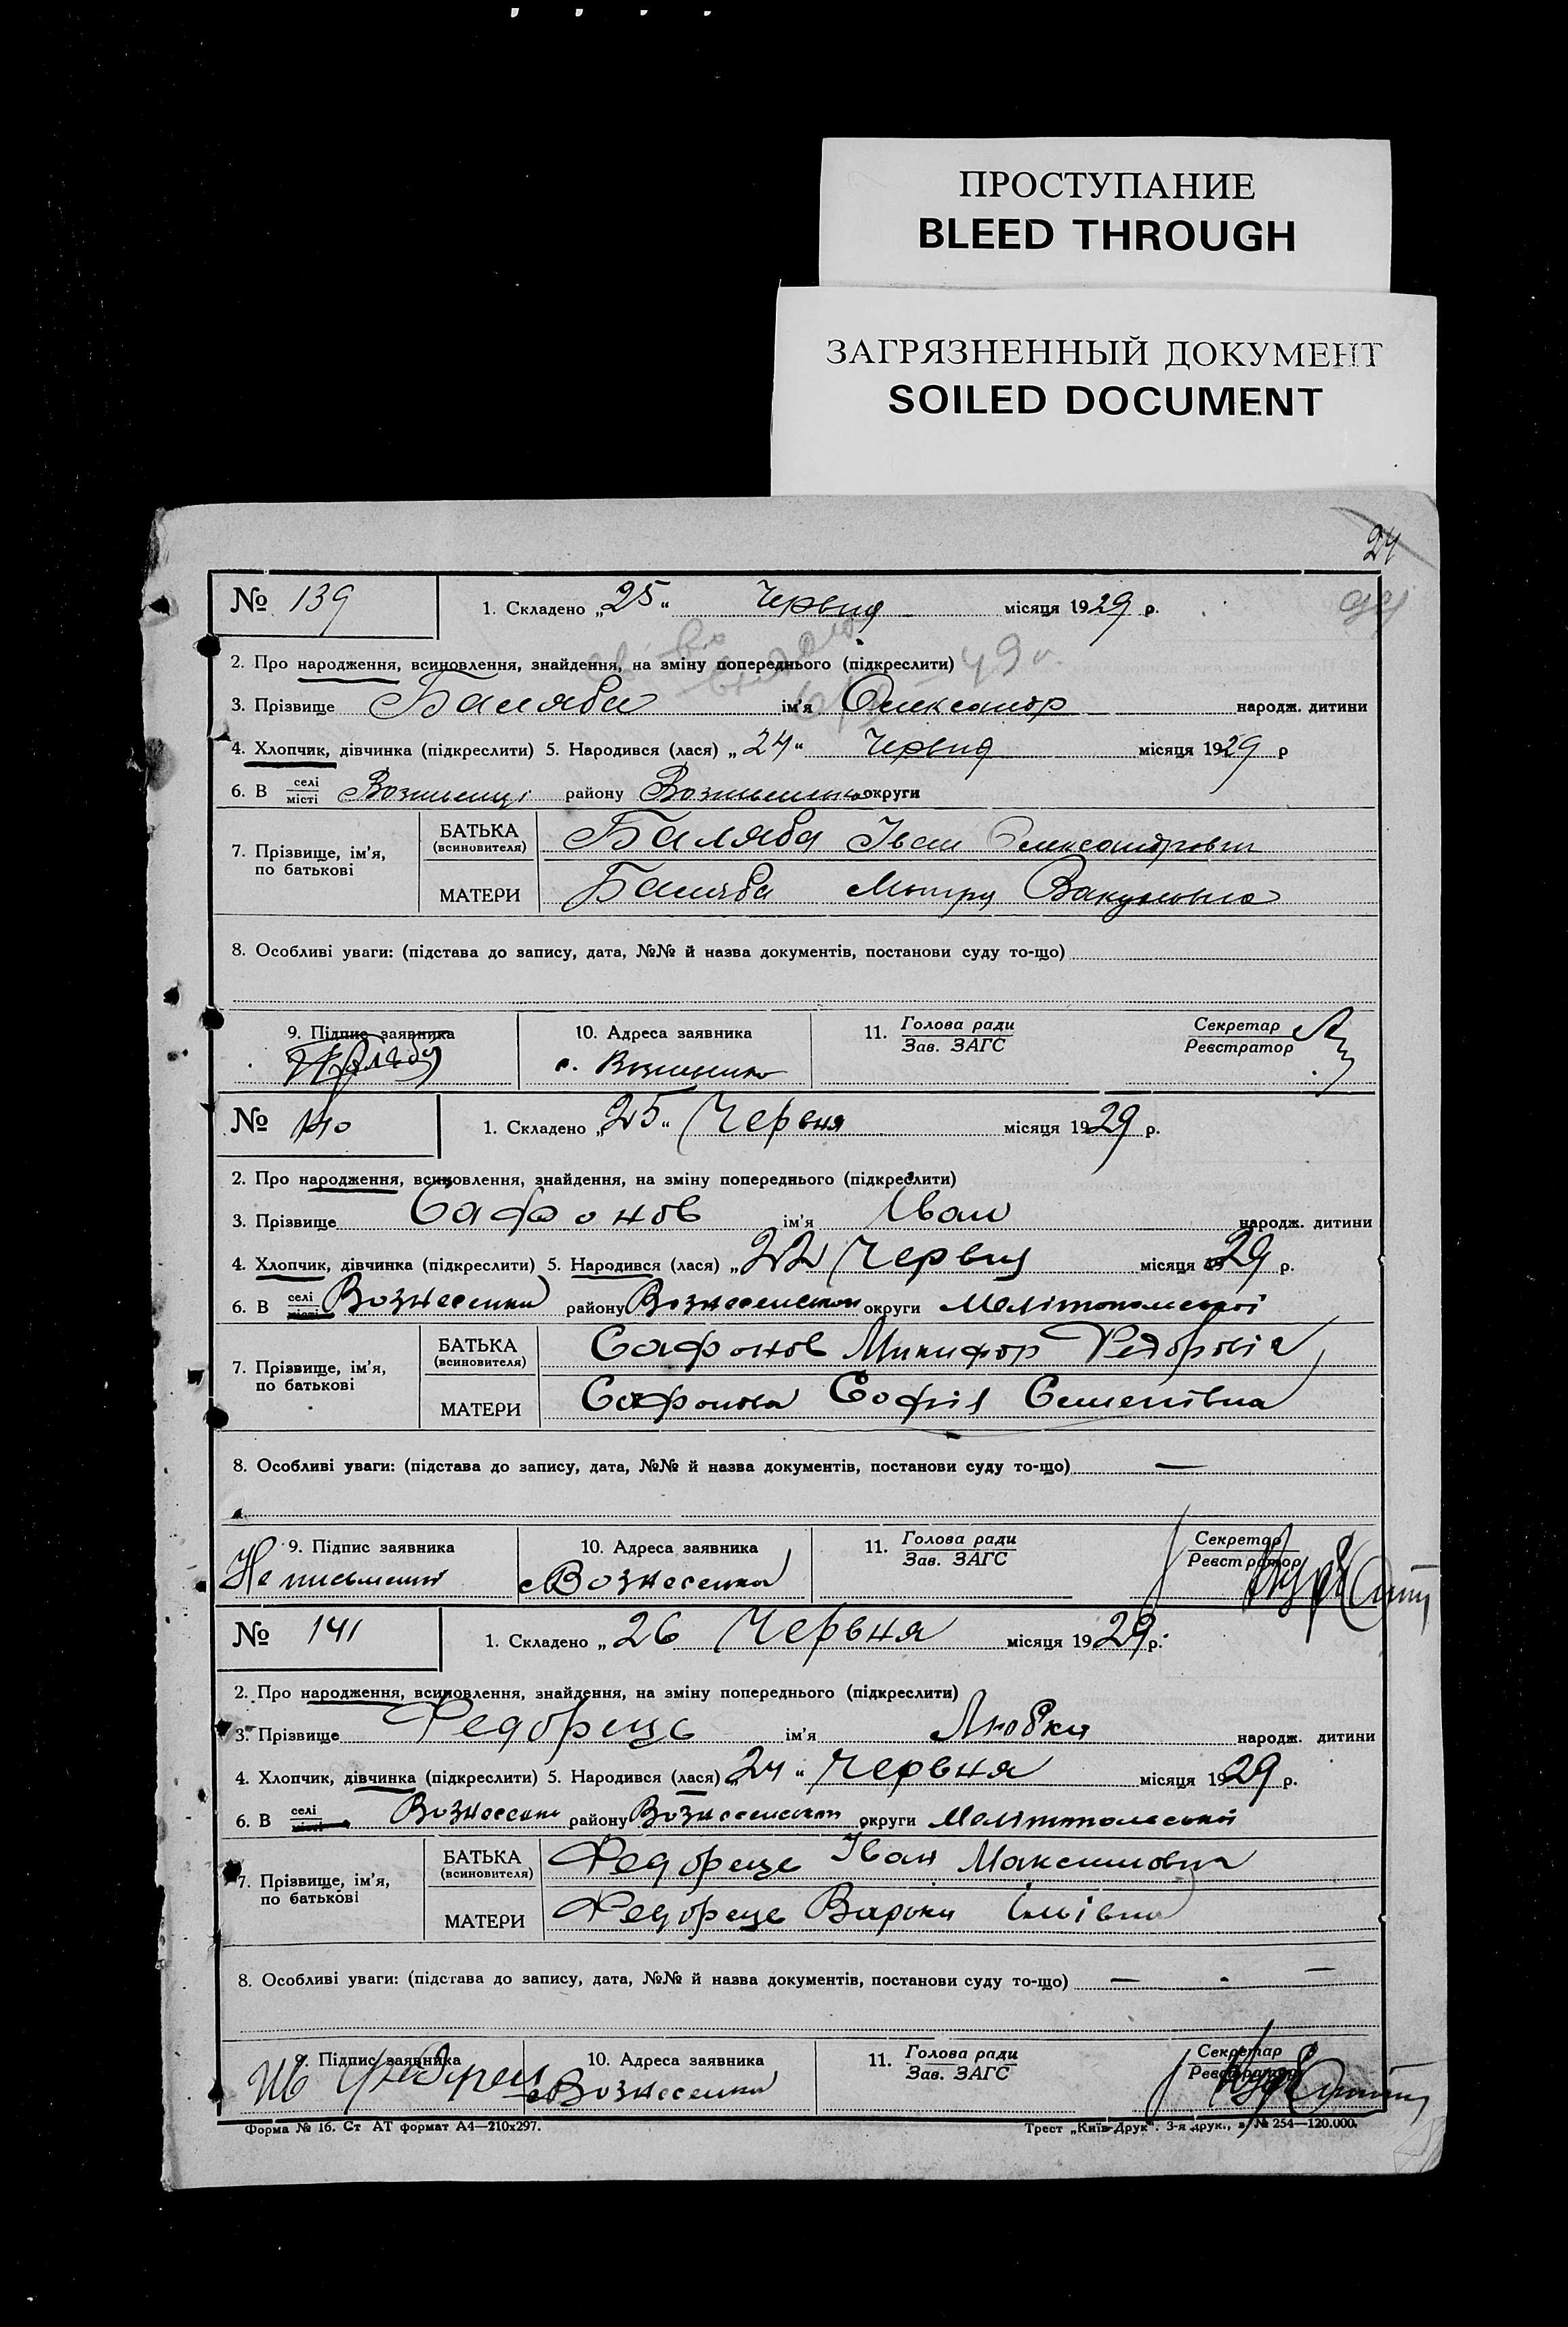 ПРОСТУПАНИЕ
BLEED THROUGH
ЗАГРЯЗНЕННЫЙ ДОКУМЕНТ
SOILED DOCUMENT
24
№ 139 1. Складено „25“ Червня місяця 1929 р.
2. Про народження, всиновлення, знайдення, на зміну попереднього (підкреслити)
3. Прізвище Баляба ім'я Олександр народж. дитини
4. Хлопчик, дівчинка (підкреслити) 5. Народився (лася) „24“ Червня місяця 1929 р
6. В селі/місті району округи
7. Прізвище, ім'я, по батькові
БАТЬКА (всиновителя) Баляба Іван Олександрович
МАТЕРИ Баляба Вакуловна
8. Особливі уваги: (підстава до запису, дата, №№ й назва документів, постанови суду то-що)
9. Підпис заявника 10. Адреса заявника 11. Голова ради/Зав. ЗАГС Секретар/Реєстратор
Баляба с. Вознесенка
№ 140 1. Складено „25“ Червня місяця 1929 р.
2. Про народження, всиновлення, знайдення, на зміну попереднього (підкреслити)
3. Прізвище Сафонов ім'я Іван народж. дитини
4. Хлопчик, дівчинка (підкреслити) 5. Народився (лася) „22 Червня місяця 29 р.
6. В селі/місті Вознесенки району Вознесенської округи Мелітопольської
7. Прізвище, ім'я, по батькові
БАТЬКА (всиновителя) Сафонов Микифор Федорович
МАТЕРИ Сафонова Софія Семенівна
8. Особливі уваги: (підстава до запису, дата, №№ й назва документів, постанови суду то-що) —
9. Підпис заявника 10. Адреса заявника 11. Голова ради/Зав. ЗАГС Секретар/Реєстратор
Не письменні с Вознесенка
№ 141 1. Складено „26 Червня місяця 1929 р.
2. Про народження, всиновлення, знайдення, на зміну попереднього (підкреслити)
3. Прізвище Федорець ім'я Любки народж. дитини
4. Хлопчик, дівчинка (підкреслити) 5. Народився (лася) „24“ Червня місяця 1929 р.
6. В селі/місті Вознесенки району Вознесенської округи Мелітопольської
7. Прізвище, ім'я, по батькові
БАТЬКА (всиновителя) Федорець Іван Максимович
МАТЕРИ Федорець Варька
8. Особливі уваги: (підстава до запису, дата, №№ й назва документів, постанови суду то-що) — - —
9. Підпис заявника 10. Адреса заявника 11. Голова ради/Зав. ЗАГС Секретар/Реєстратор
Ив Федорец с Вознесенка
Форма № 16. Ст АТ формат А4—210х297. Трест „Київ-Друк“. 3-я друк., з. № 254—120.000.